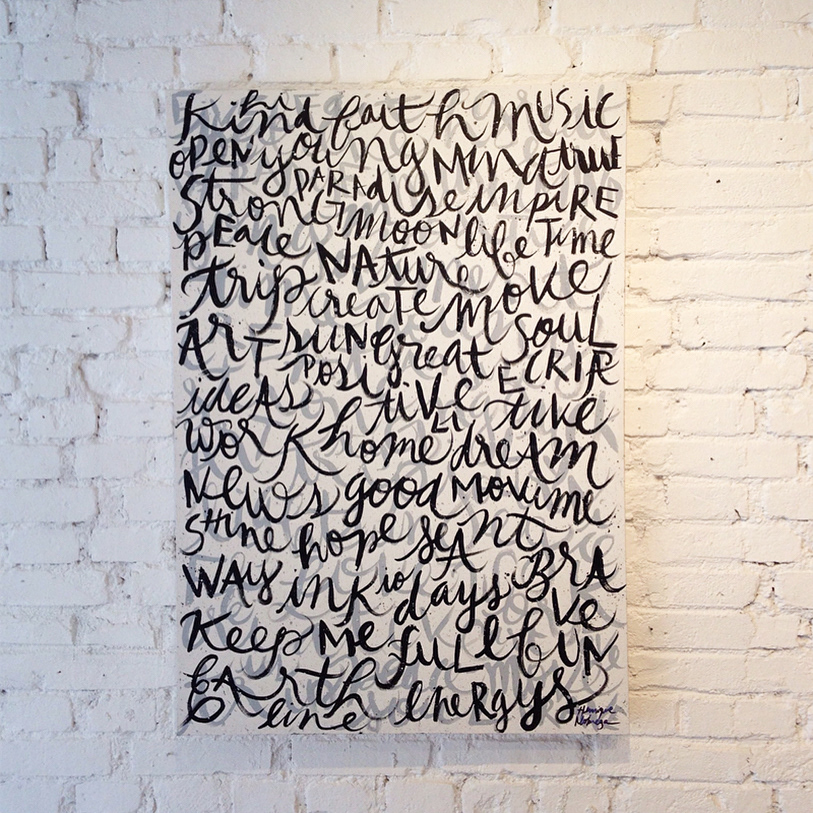 Kind hi faith MUSIC
OPEN young Mind true
Strong PARAdise inspiRE
PEace MOON life Time
NAture
trip creaTe move
ART SUN great SOUL
ideAs POSI tive ECRIRE
WORK home LI dreAm
News good
Shine hope sea
WAy ink 10 days BRA
Keep Me full FUN VE
EARth
line eneRgys